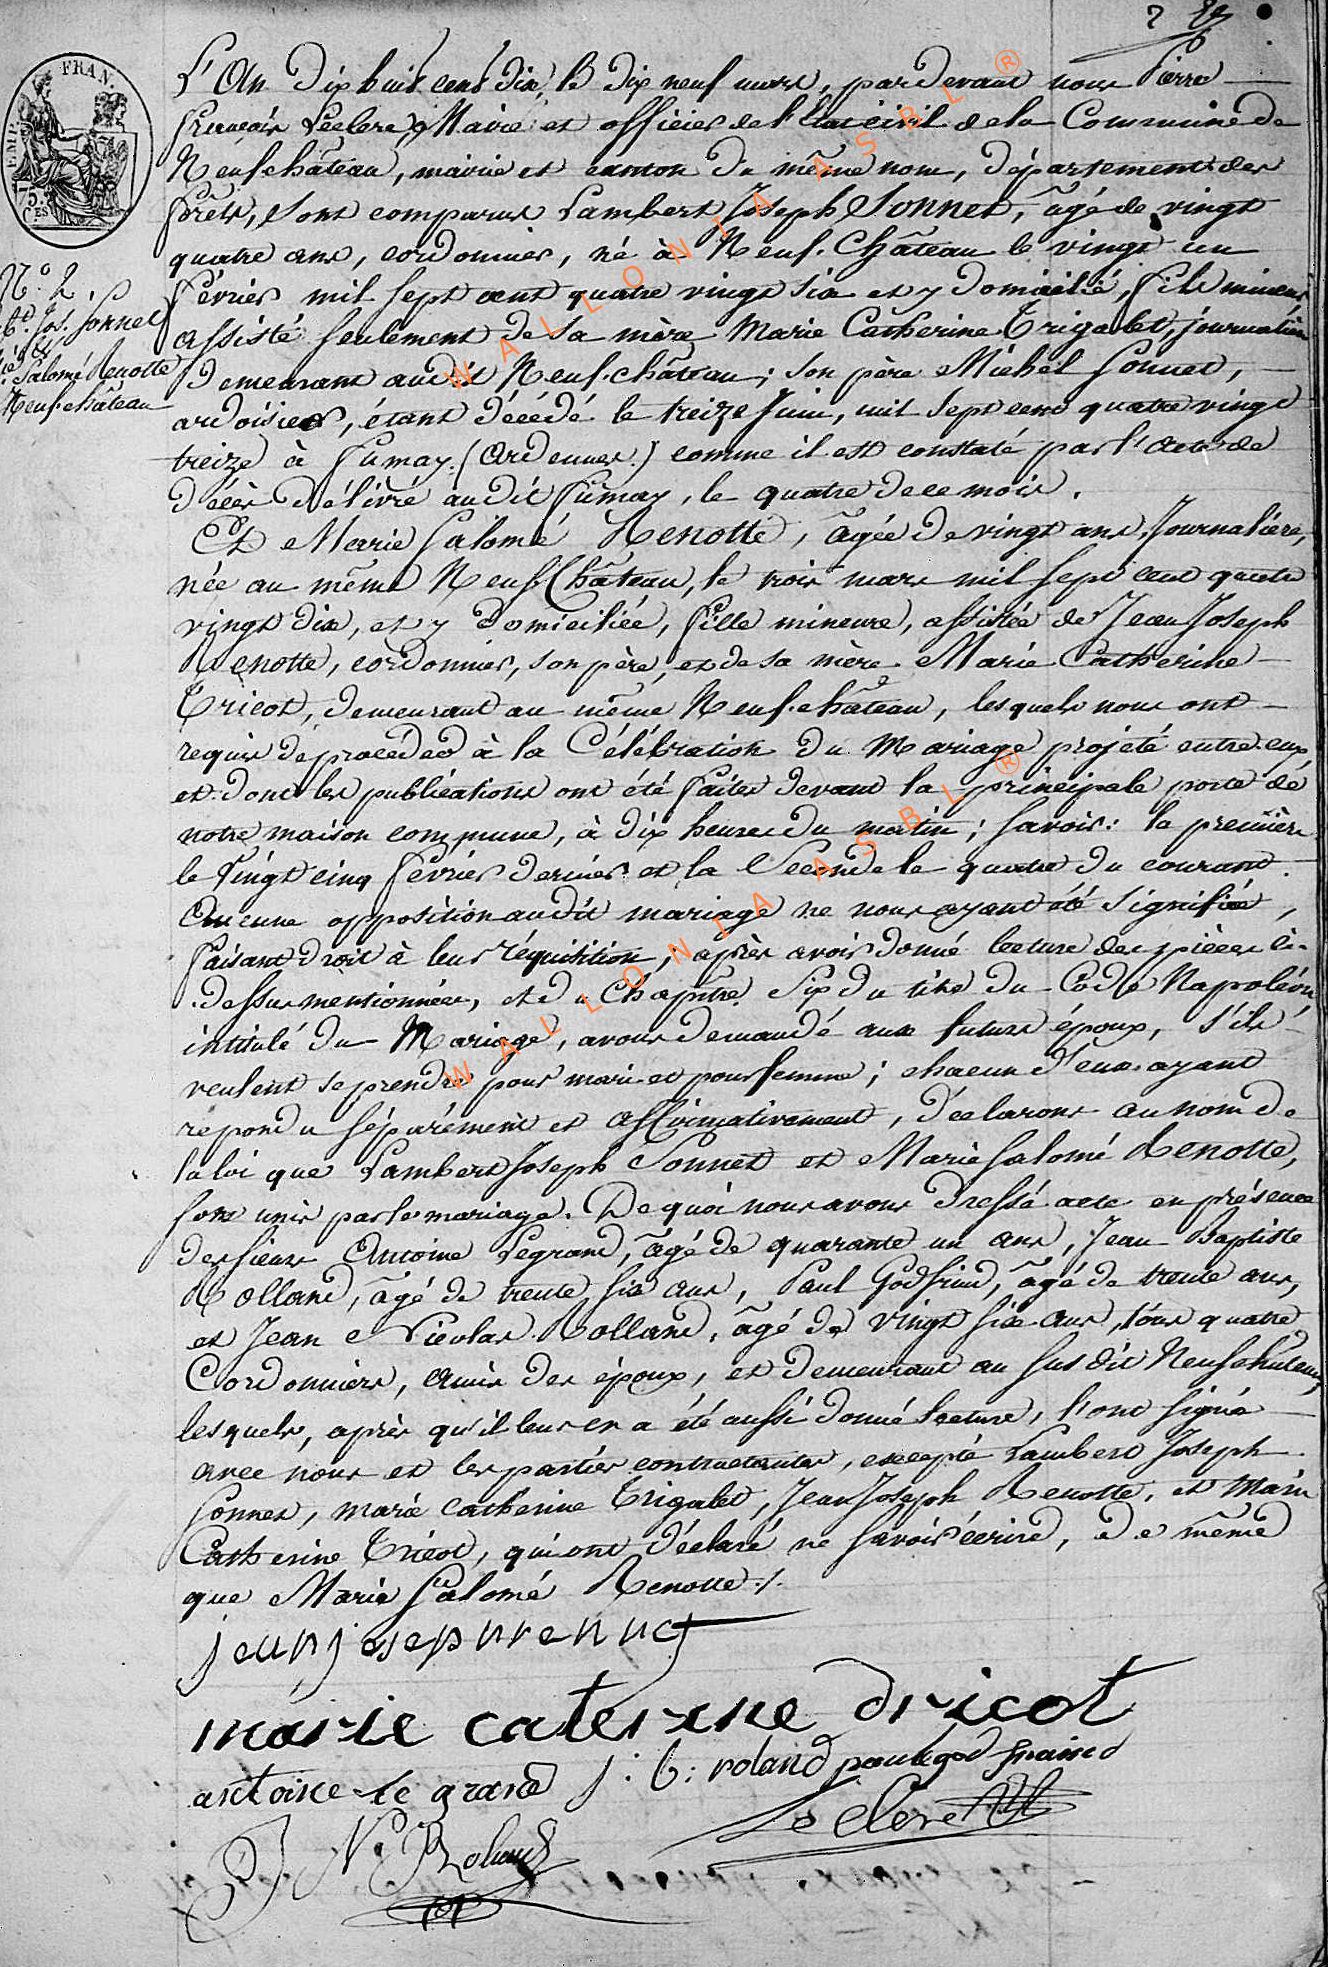 FRAN
EMP
75
CES
N.° 2.
Bt. Jos. Sonnet
&
Salomé Renotte
Neufchâteau
L'An dix huit cent dix, le dix neuf mars, pardevant nous Pierre
François Leclere, Maire et officier de l'Etat civil de la Commune de
Neufchâteau, mairie et canton du même nom, département des
forêts, sont comparus Lambert Joseph Sonnet, âgé de vingt
quatre ans, cordonnier, né à Neuf-Château le vingt un
février mil sept cent quatre vingt six et y domicilié, fils mineur
assisté seulement de sa mère Marie Catherine Trigalet, journalière
demeurant audit Neuf-château ; son père Michel Sonnet,
ardoisier, étant décédé le treize Juin, mil sept cent quatre vingt
treize à fumay (Ardennes) comme il est constaté par l'acte de
décès délivré audit fumay, le quatre de ce mois.
Et Marie Salomé Renotte, âgée de vingt ans, Journalière,
née au même Neuf Château, le trois mars mil sept cent quatre
vingt dix, et y domiciliée, fille mineure, assistée de Jean Joseph
Renotte, cordonnier, son père, et de sa mère Marie Catherine
Tricot, demeurant au même Neuf-château, lesquels nous ont
requis de procéder à la Célébration du Mariage projeté entre eux
et dont les publications ont été faites devant la principale porte de
notre maison commune, à dix heures du matin ; savoir : la première
le vingt cinq février dernier et la Seconde le quatre du courant.
Aucune opposition audit mariage ne nous ayant été signifiée,
faisant droit à leur réquisition, après avoir donné lecture des pièces ci-
dessus mentionnées, et du Chapitre Six du titre du Code Napoléon
intitulé du Mariage, avons demandé aux futurs époux, s'ils
veulent se prendre pour mari et pour femme ; chacun d'eux ayant
répondu séparément et affirmativement, déclarons au nom de
la loi que Lambert Joseph Sonnet et Marie Salomé Renotte,
sont unis par le mariage. De quoi nous avons dressé acte en présence
des sieurs Antoine Legrand, âgé de quarante un ans, Jean Baptiste
Rolland, âgé de trente six ans, Paul Godfrind, âgé de trente ans,
et Jean Nicolas Rolland, âgé de vingt six ans, tous quatre
Cordonniers, amis des époux, et demeurant au susdit Neufchateau,
lesquels, après qu'il leur en a été aussi donné lecture, l'ont signé
avec nous et les parties contractantes, excepté Lambert Joseph
Sonnet, marie Catherine Trigalet, Jean Joseph Renotte, et Marie
Catherine Tricot, qui ont déclaré ne savoir écrire, de même
que Marie Salomé Renotte ./.
marie caterine dricot
antoine le grand j : b : roland
Leclere
J N Roland
WALLONIA ASBL ®
WALLONIA ASBL ®